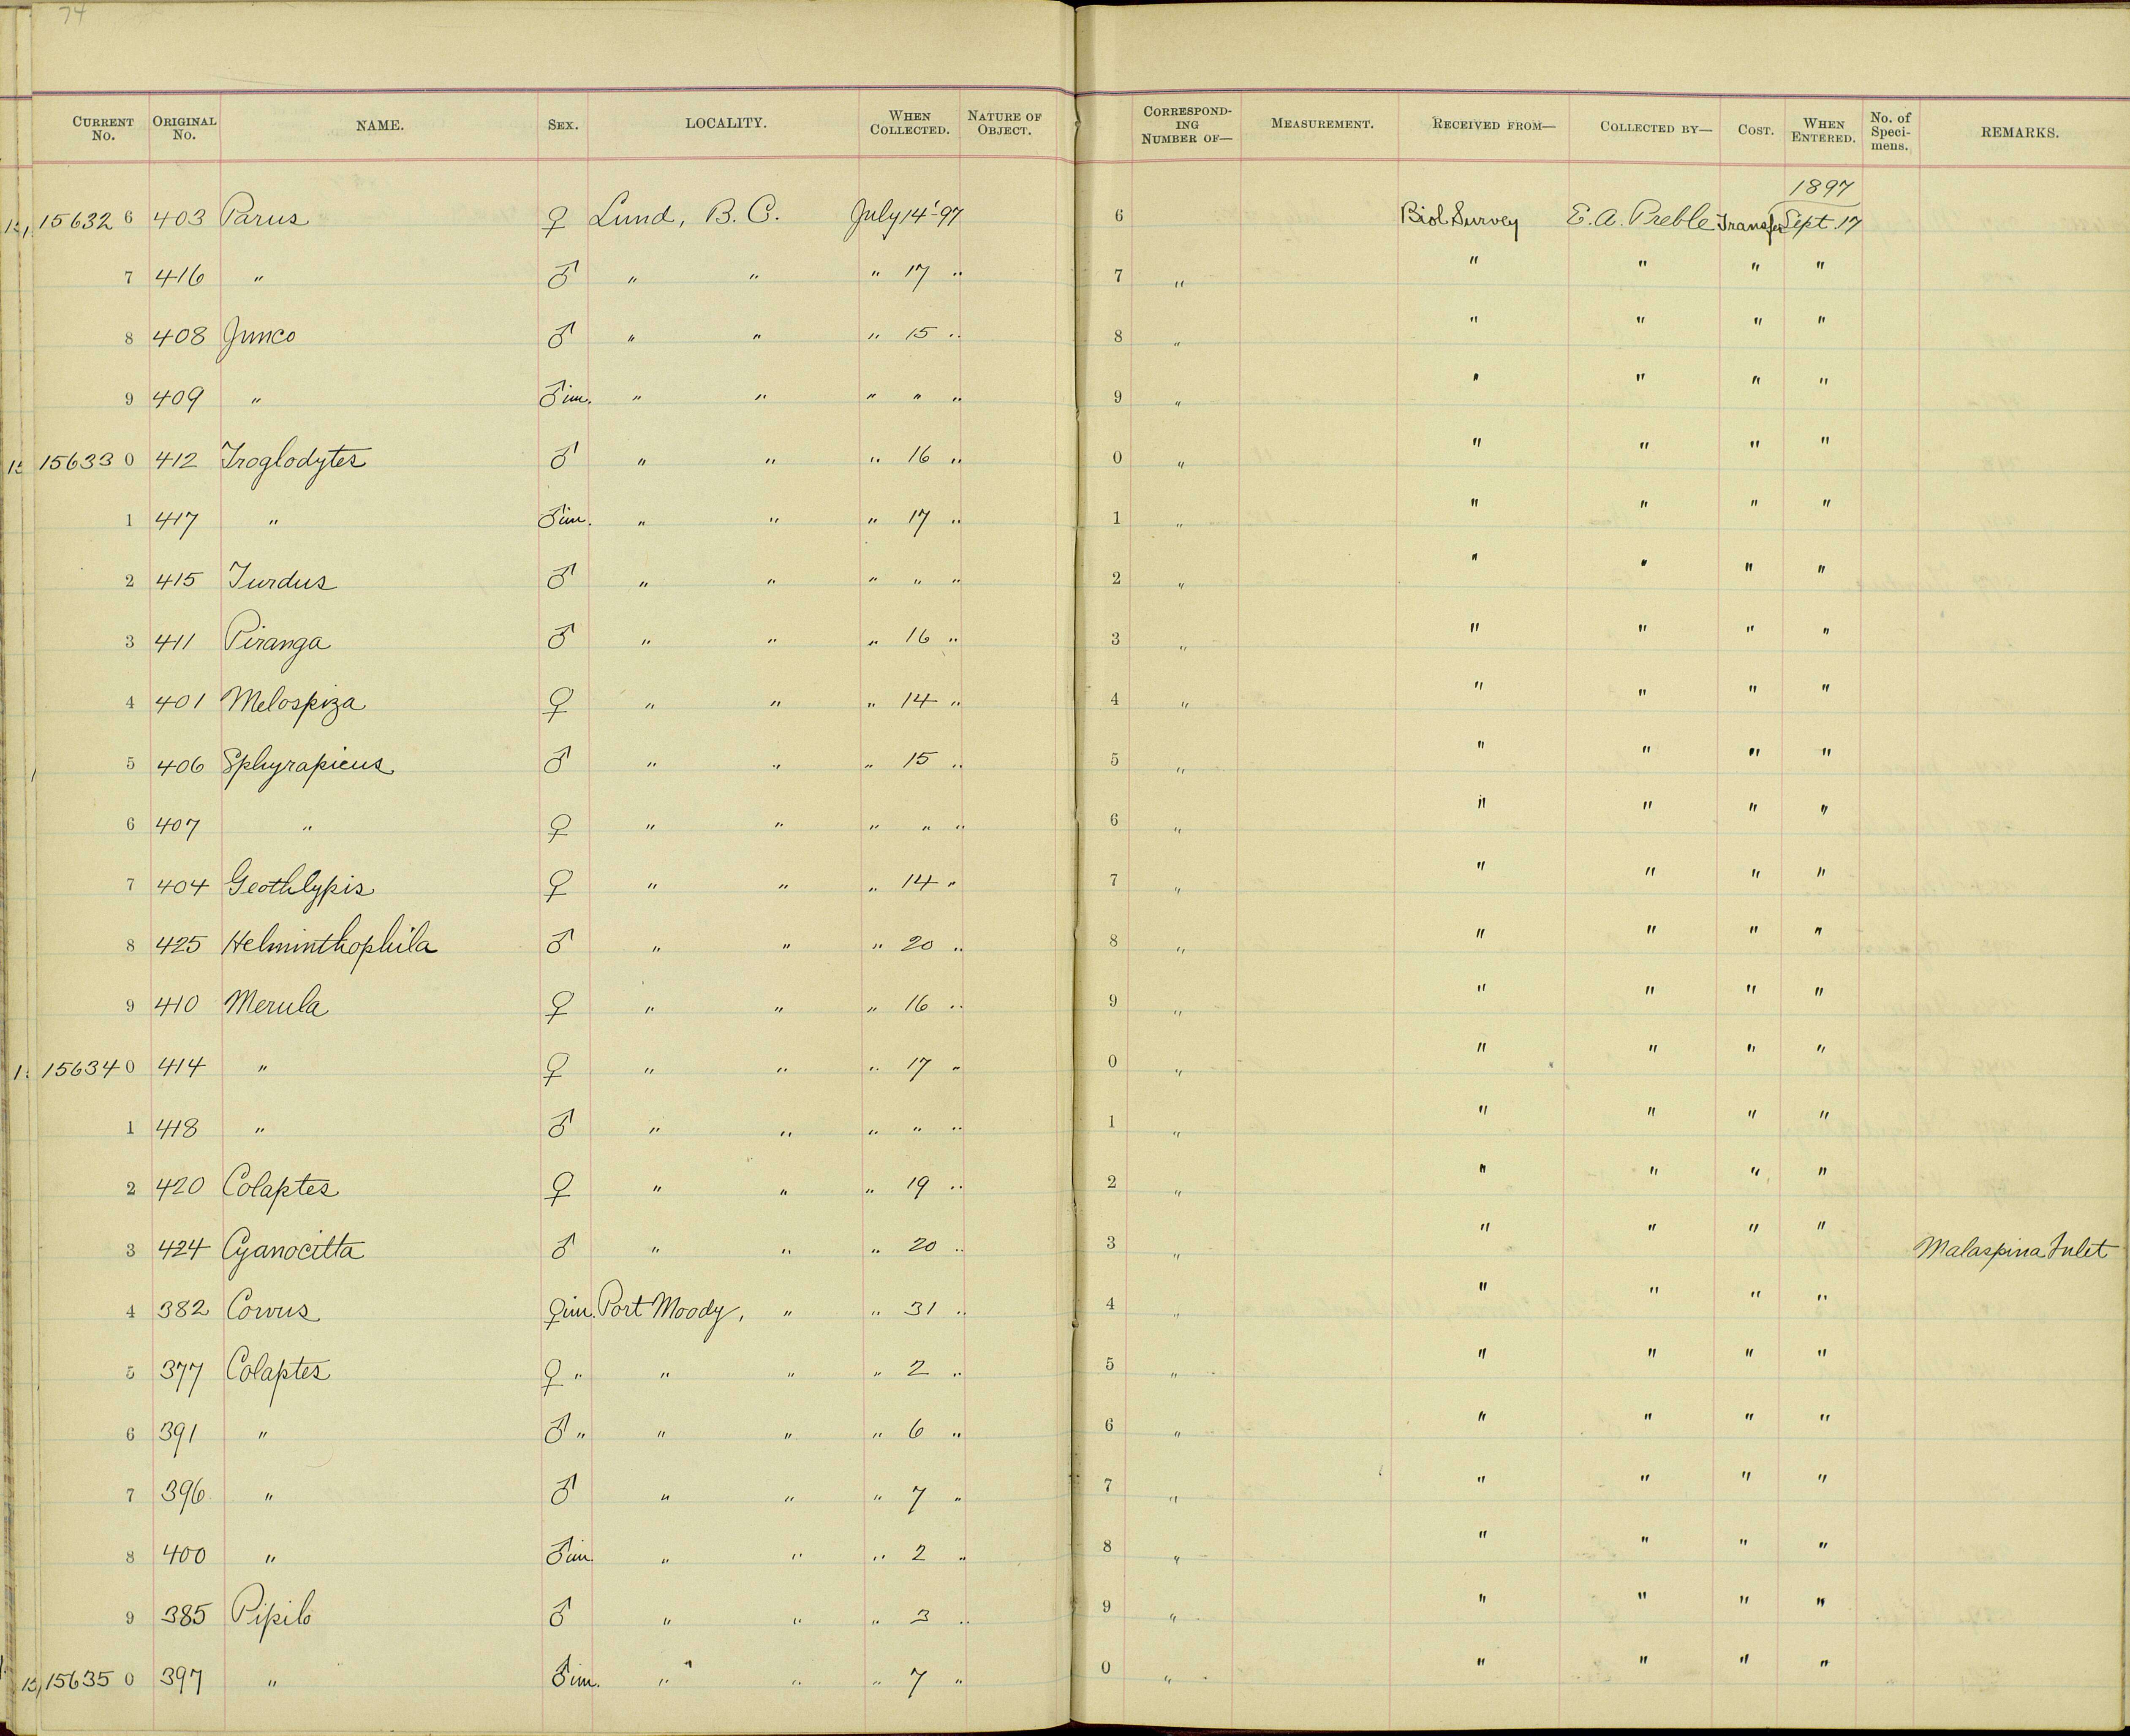 74
CURRENT No. ORIGINAL No. NAME. SEX. LOCALITY. WHEN COLLECTED. NATURE OF OBJECT. CORRESPONDING NUMBER OF— MEASUREMENT. RECEIVED FROM— COLLECTED BY— COST. WHEN ENTERED. No. of Specimens. REMARKS.
1897
15632 6 403 Parus ♀ Lund, B. C. July 14'-97 6 Biol Survey E. A. Preble Transfer Sept. 17
7 416 " ♂ " " " 17 " 7 " " " " "
8 408 Junco ♂ " " " 15 " 8 " " " " "
9 409 " ♂ im. " " " " " 9 " " " " "
15633 0 412 Troglodytes ♂ " " " 16 " 0 " " " " "
1 417 " ♂ im. " " " 17 " 1 " " " " "
2 415 Turdus ♂ " " " " " 2 " " " " "
3 411 Piranga ♂ " " " 16 " 3 " " " " "
4 401 Melospiza ♀ " " " 14 " 4 " " " " "
5 406 Sphyrapicus ♂ " " " 15 " 5 " " " " "
6 407 " ♀ " " " " " 6 " " " " "
7 404 Geothlypis ♀ " " " 14 " 7 " " " " "
8 425 Helminthophila ♂ " " " 20 " 8 " " " " "
9 410 Merula ♀ " " " 16 " 9 " " " " "
15634 0 414 " ♀ " " " 17 " 0 " " " " "
1 418 " ♂ " " " " " 1 " " " " "
2 420 Colaptes ♀ " " " 19 " 2 " " " " "
3 424 Cyanocitta ♂ " " " 20 " 3 " " " " " Malaspina Inlet
4 382 Corvus ♀ im. Port Moody, " " 31 " 4 " " " " "
5 377 Colaptes ♀ " " " " 2 " 5 " " " " "
6 391 " ♂ " " " " 6 " 6 " " " " "
7 396 " ♂ " " " 7 " 7 " " " " "
8 400 " ♂ im. " " " 2 " 8 " " " " "
9 385 Pipilo ♂ " " " 3 " 9 " " " " "
15635 0 397 " ♂ im. " " " 7 " 0 " " " " "